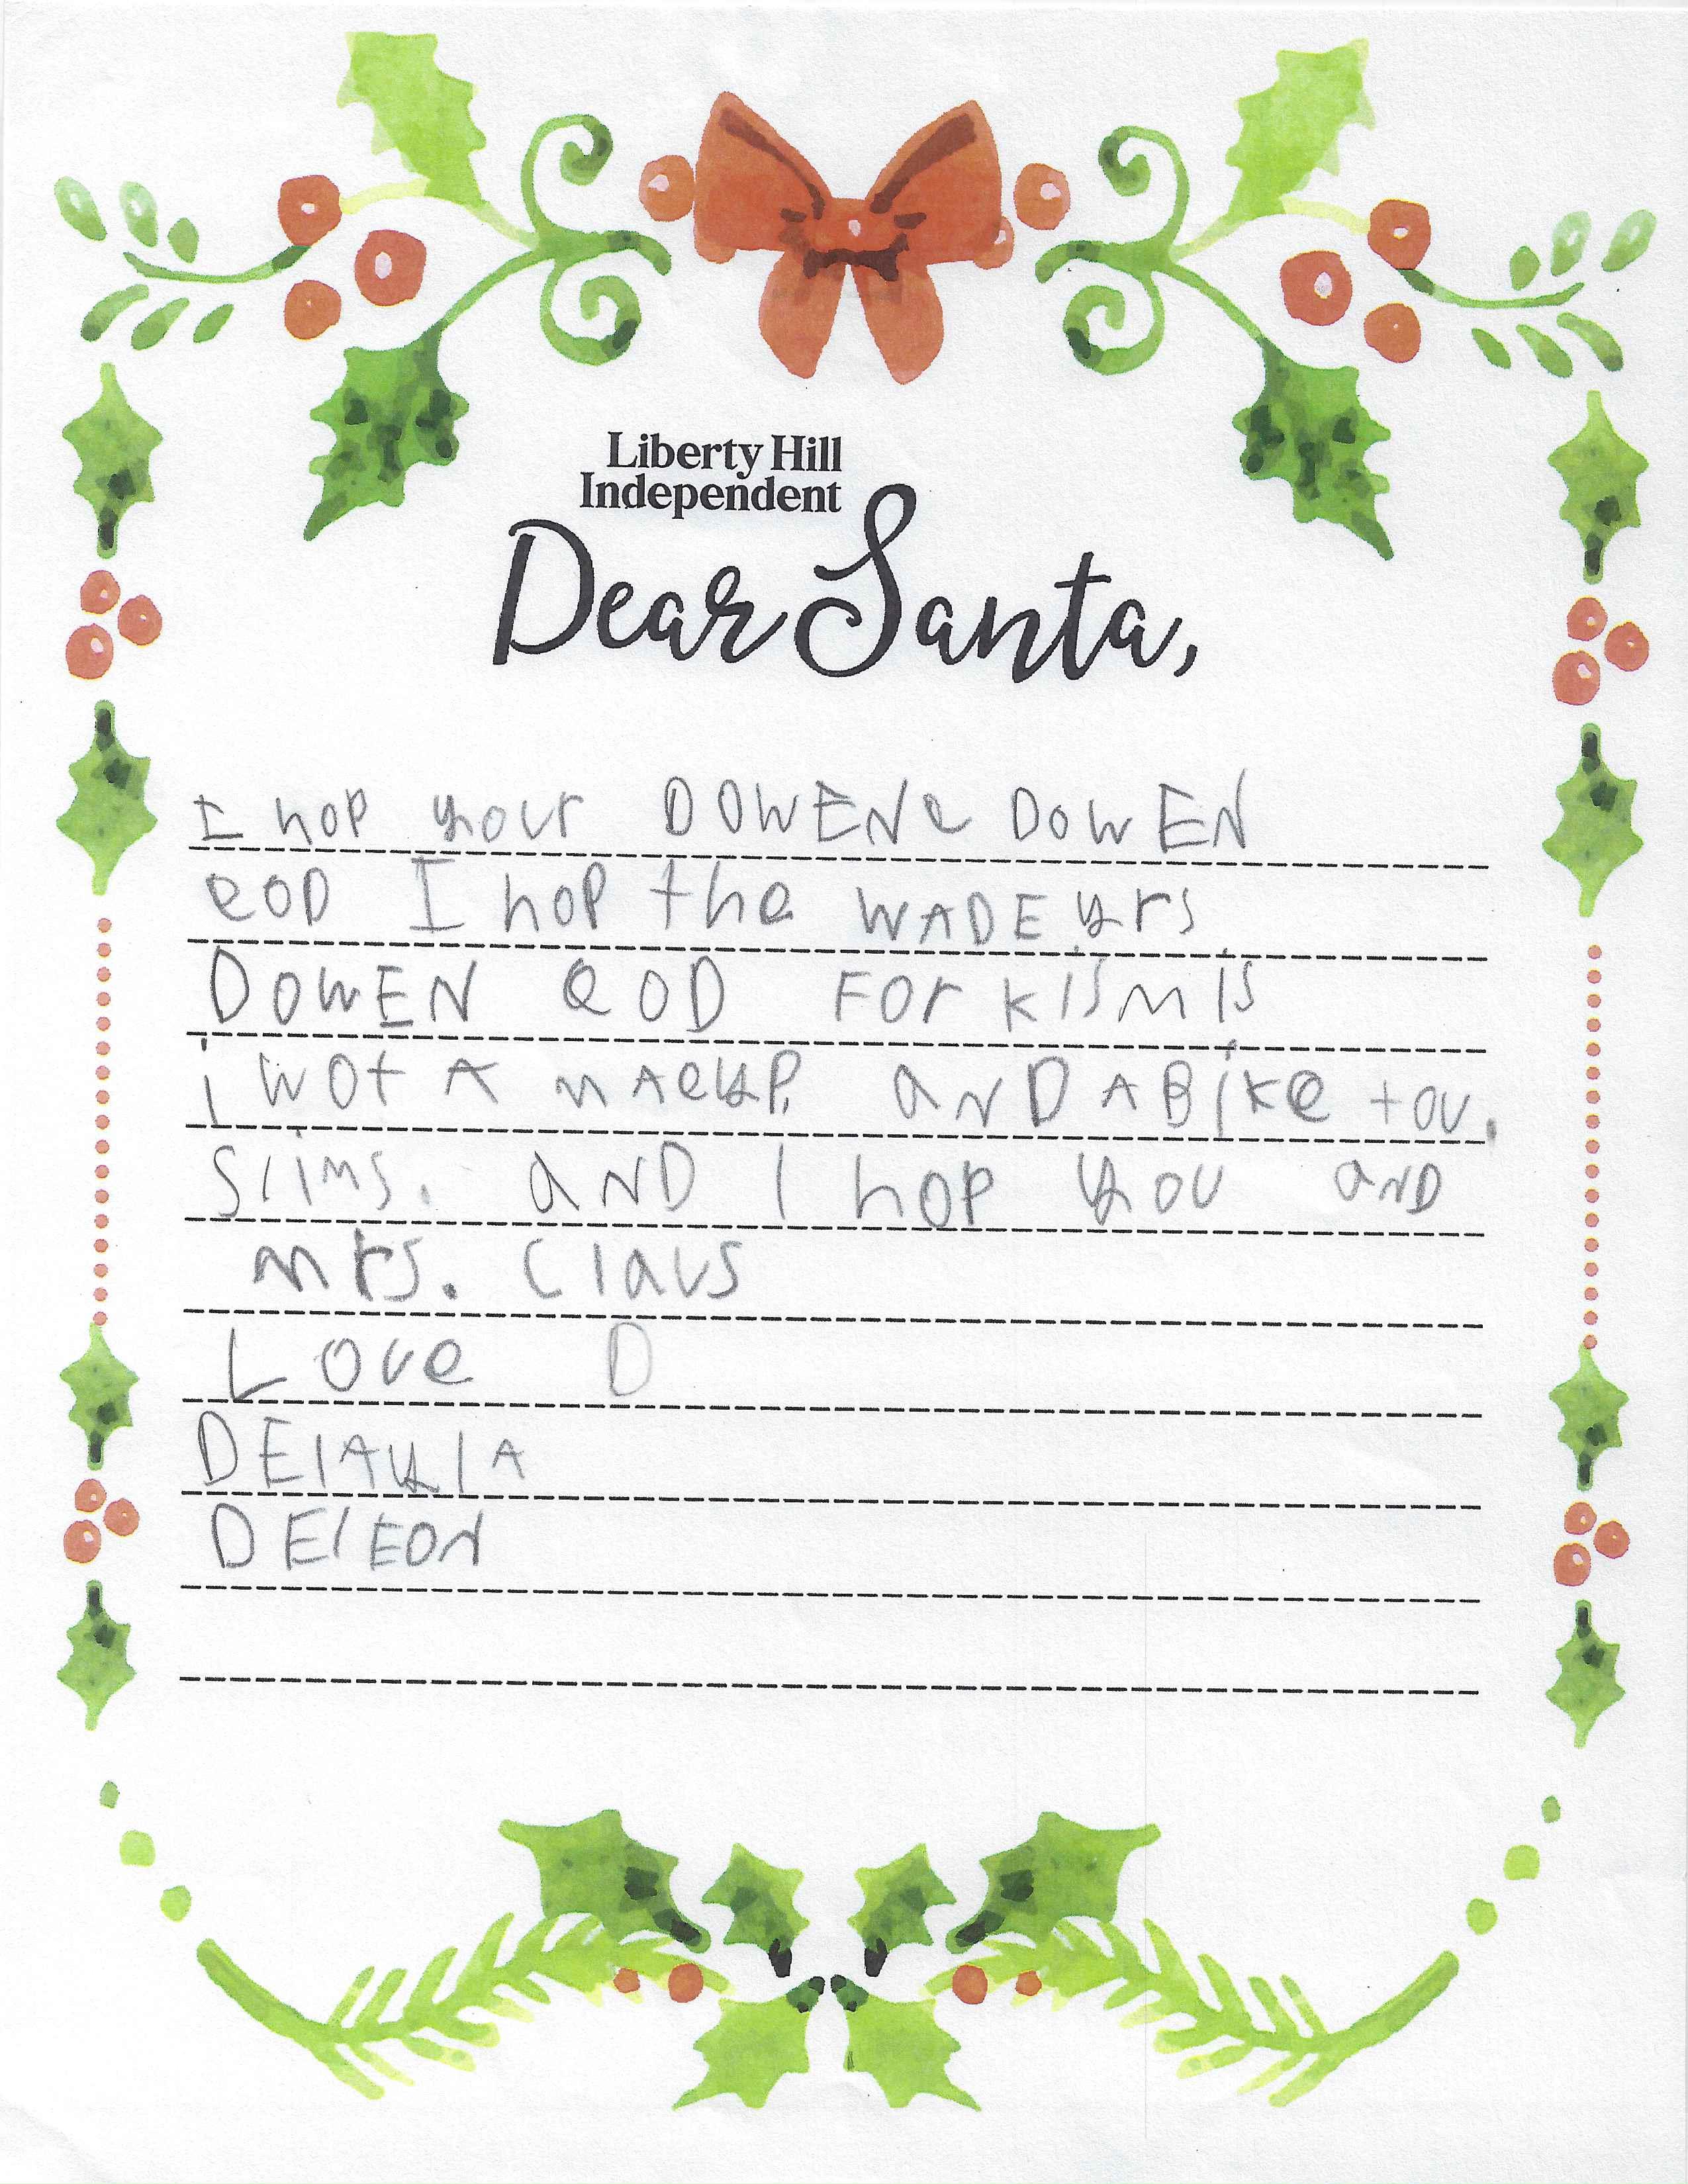 Liberty Hill
Independent
Dear Santa,
I hop your DOWENe DOWEN
eOD I hop the WADEyrs
DOWEN eOD FOr kismis
i wot A mAeyP. aND A Bike tou.
Slims. aND I hop you aND
mrs. Claus
Love D
DElAylA
DElEON